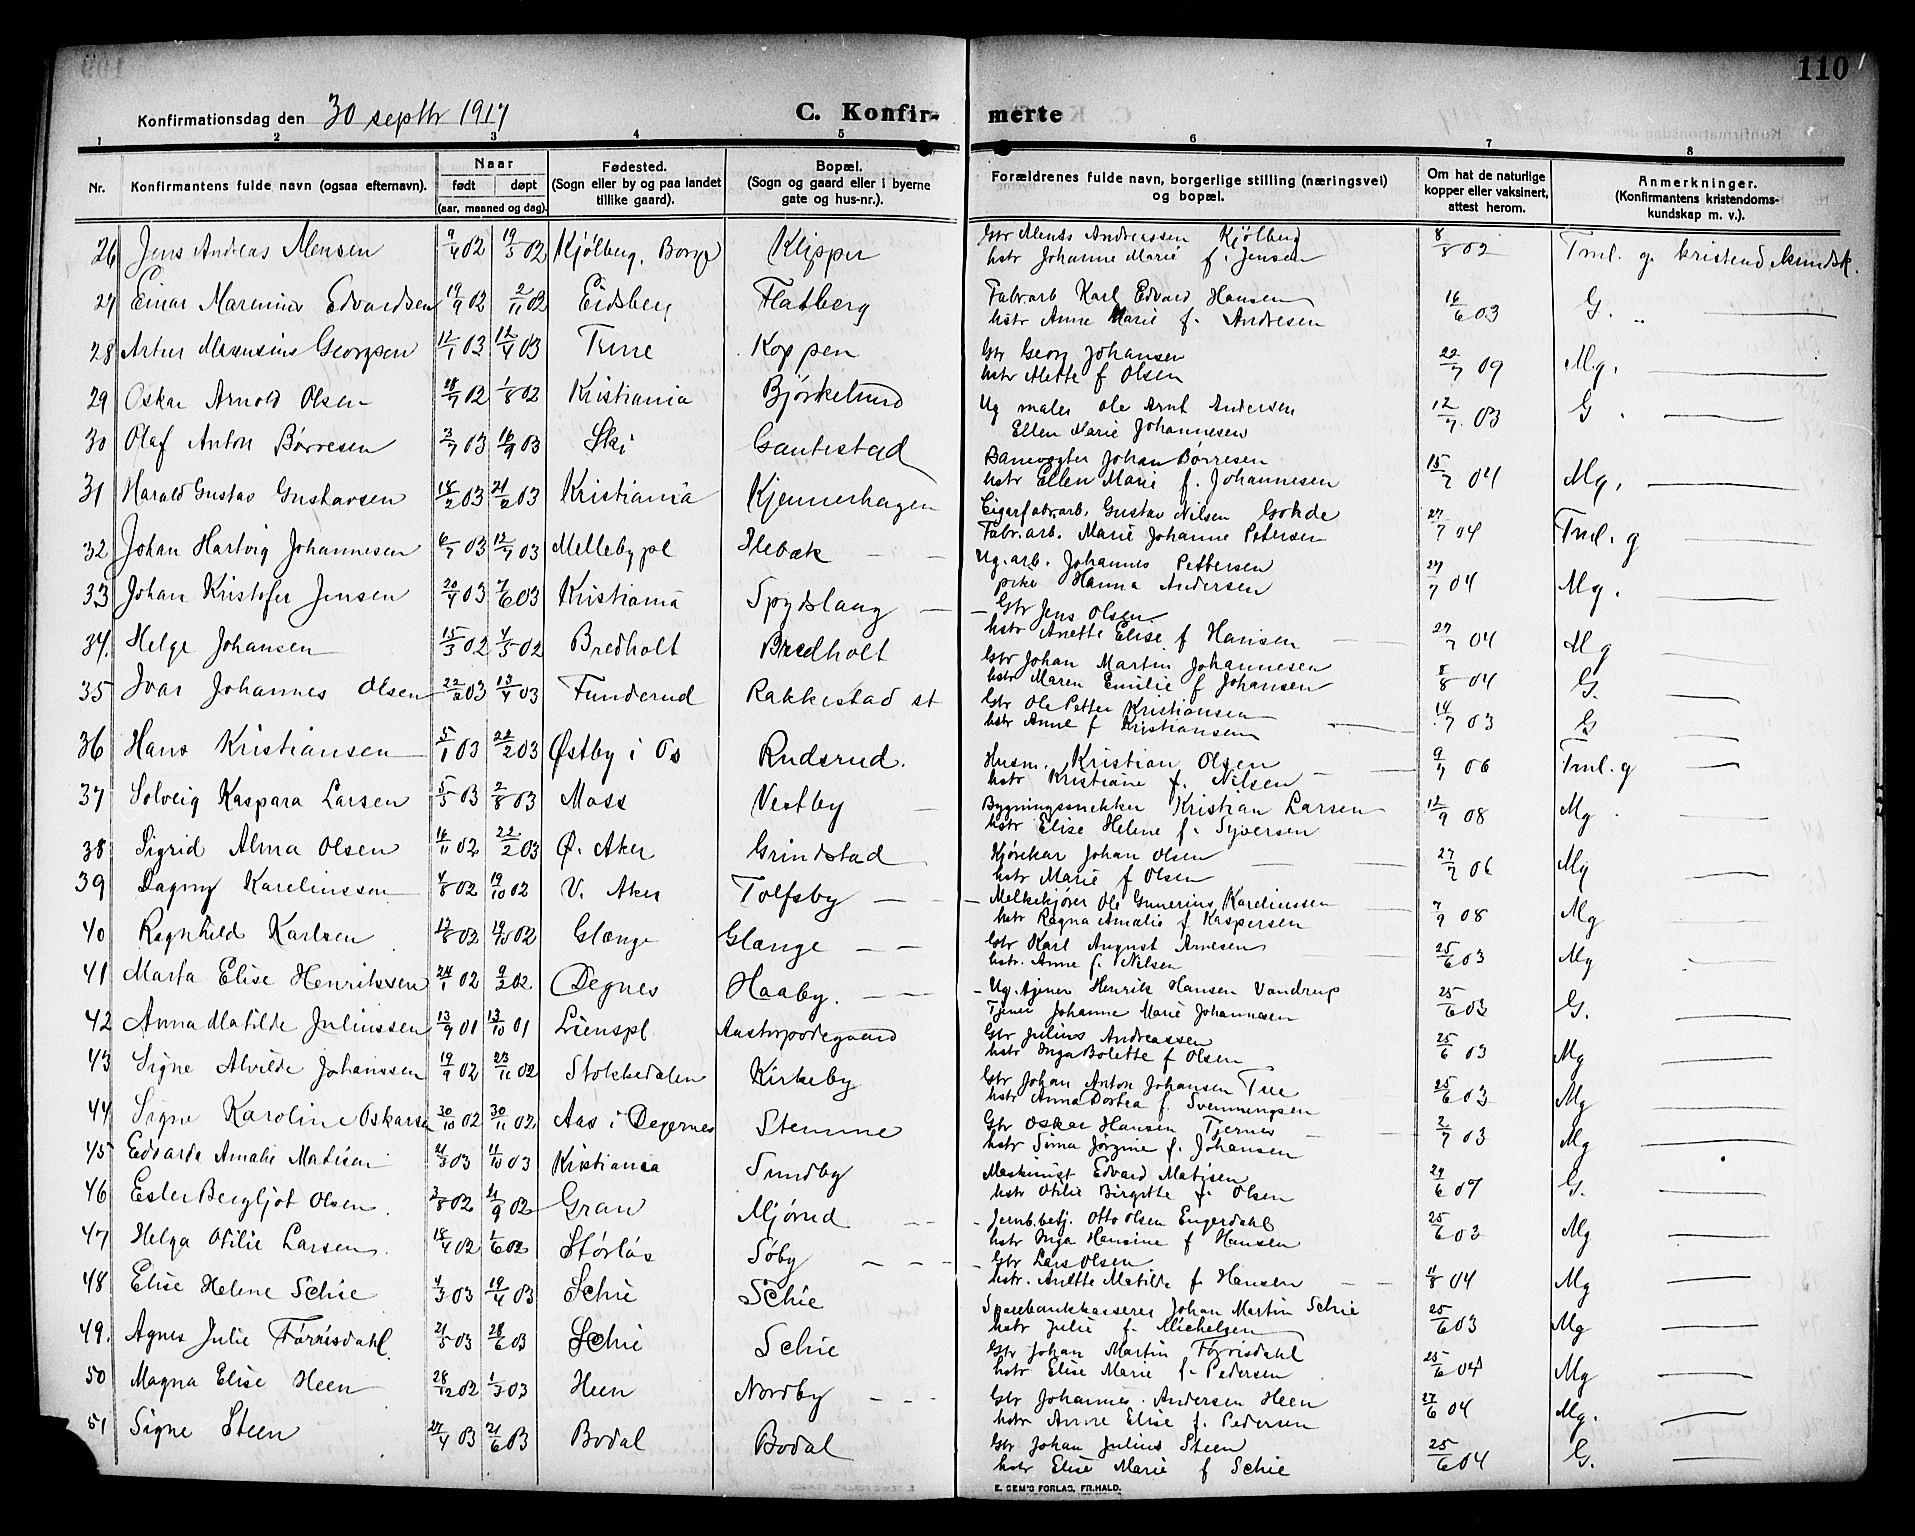 110
Konfirmationsdag den 30 septbr 1917
C. Konfirmerte
1 2 3 4 5 6 7 8
Nr. Konfirmantens fulde navn (ogsaa efternavn). Naar født døpt (aar, maaned og dag). Fødested. (Sogn eller by og paa landet tillike gaard). Bopæl. (Sogn og gaard eller i byerne gate og hus-nr.). Forældrenes fulde navn, borgerlige stilling (næringsvei) og bopæl. Om hat de naturlige kopper eller vaksinert, attest herom. Anmerkninger. (Konfirmantens kristendomskundskap m. v.).
26 Jens Andreas Mensen 9/4 02 19/5 02 Kjølberg, Borge Klipper Gbr Ments Andreassen Kjølberg
hstr Johanne Marie f. Jensen 8/8 02 Tml. g. kristend.kundsk.
27 Einar Marenius Edvardsen 19/9 02 2/11 02 Eidsberg Flatberg Fabr.arb Karl Edvard Hansen
hstr Anne Marie f. Andresen 16/6 03 G. „
28 Artur Magnsius Georgsen 12/1 03 12/4 03 Tune Koppen Gbr Georg Johansen
hstr Mette f Olsen 22/7 09 Mg.
29 Oskar Arnold Olsen 28/7 02 1/8 02 Kristiania Bjørkelund Ug maler Ole Arnt Andersen
Ellen Marie Johannesen 12/7 03 G.
30 Olaf Anton Børresen 3/7 03 16/9 03 Ski Gautestad Banevogter Johan Børresen
hstr Ellen Marie f. Johannesen 15/7 04 Mg.
31 Harald Gustav Gustavsen 18/2 03 21/6 03 Kristiania Kjennerhagen Cigarfabrarb. Gustav Nilsen Gokde
Fabr.arb. Marie Johanne Petersen 27/7 04 Tml. g
32 Johan Hartvig Johannesen 6/7 03 12/7 03 Mellebypl Ilebæk Ug. arb. Johannes Pettersen
pike Hanna Andersen 27/7 04 Mg.
33 Johan Kristofer Jensen 20/4 03 7/6 03 Kristiania Spydslaug Gbr Jens Olsen
hstr Anette Elise f Hansen 27/7 04 Mg
34. Helge Johansen 15/3 02 4/5 02 Bredholt Bredholt Gbr Johan Martin Johannesen
hstr Maren Emilie f Johansen 8/8 04 G.
35 Ivar Johannes Olsen 22/2 03 13/4 03 Funderud Rakkestad st Gbr Ole Petter Kristiansen
hstr Anne f Kristiansen 14/7 03 G
36 Hans Kristiansen 5/1 03 22/2 03 Østby i Os Rudsrud. Husm. Kristian Olsen
hstr Kristiane f. Nilsen 9/7 06 Tml. g
37 Solveig Kaspara Larsen 5/5 03 2/8 03 Moss Vestby Bygningssnekker Kristian Larsen
hstr Elise Helene f. Syversen 12/9 08 Mg
38 Sigrid Alma Olsen 16/11 02 22/2 03 Ø. Aker Grindstad Kjørekar Johan Olsen
hstr Marie f Olsen 27/7 06 Mg
39 Dagny Karelinssen 4/8 02 19/10 02 V. Aker Tolfsby Melkekjører Ole Gunerius Karelinssen
hstr Ragna Amalie f Kaspersen 7/9 08 Mg
40 Ragnhild Karlsen 12/8 02 19/10 02 Glænge Glænge Gbr Karl August Arnesen
hstr. Anne f. Nilsen 25/6 03 Mg
41 Marta Elise Henrikssen 24/1 02 9/3 02 Degnes Haaby. Ug. tjener Henrik Hansen Vandrup
Tjener Johanne Marie Johannesen 25/6 03 G.
42 Anna Matilde Julinssen 13/9 01 13/10 01 Lienspl Aastorpødegaard Gbr Julius Andreassen
hstr Inga Bolette f Olsen 25/6 03 Mg
43 Signe Alvilde Johanssen 19/9 02 23/11 02 Stokkedalen Kirkeby Gbr Johan Anton Johansen Tue
hstr Anna Dortea f. Svenningsen 25/6 03 Mg
44 Signe Karoline Oskarsen 30/10 02 30/11 02 Aas i Degernes Stemme Gbr Oskar Hansen Tjernes
hstr Sina Jørgine f. Johansen 2/7 03 Mg
45 Edvarda Amalie Matisen 21/3 03 11/10 03 Kristiania Sundby Maskinist Edvard Matisen
hstr Otilie Birgitte f. Olsen 29/6 07 G.
46 Ester Bergljot Olsen 3/8 02 21/9 02 Gran Mjørud Jernb.betj. Otto Olsen Engerdahl
hstr Inga Hansine f Hansen 25/6 03 Mg
47 Helga Otilie Larsen 18/4 02 1/6 02 Størlos Søby Gbr Lars Olsen
hstr. Anette Matilde f. Hansen 11/8 04 Mg
48 Elise Helene Schie 4/3 03 19/4 03 Schie Schie Sparebankkasserer Johan Martin Schie
hstr Julie f. Michelsen 25/6 03 Mg
49. Agnes Julie Førrisdahl 21/5 03 28/6 03 Schie Schie Gbr Johan Martin Førrisdahl
hstr Elise Marie f. Pedersen 25/6 04 Mg
50 Magna Elise Heen 28/12 02 1/3 03 Heen Nordby Gbr Johannes Andersen Heen
hstr Anne Elise f. Pedersen 27/6 04 Mg.
51 Signe Steen 27/4 03 21/6 03 Bodal Bodal Gbr Johan Julius Steen
hstr Elise Marie f Schie 25/6 04 G.
E. SEM'S FORLAG, FR.HALD.